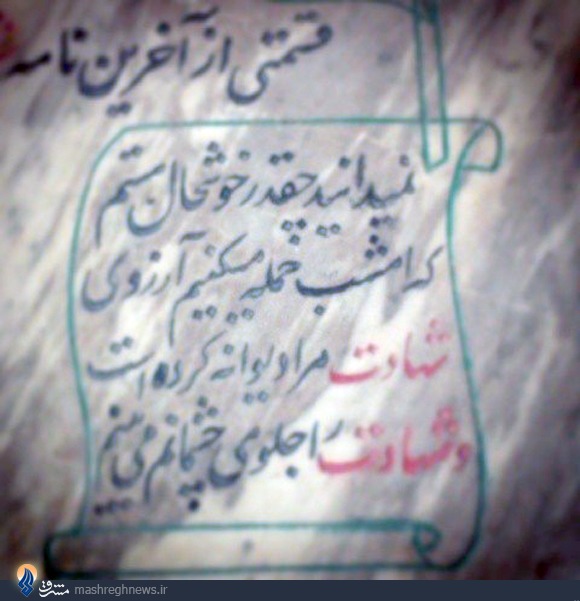 قسمتی از آخرین نامه
نمیدانید چقدر خوشحال هستم
که امشب حمله میکنیم آرزوی
شهادت مرا دیوانه کرده است
و شهادت را جلوی چشمانم می بینم
مشرق mashreghnews.ir